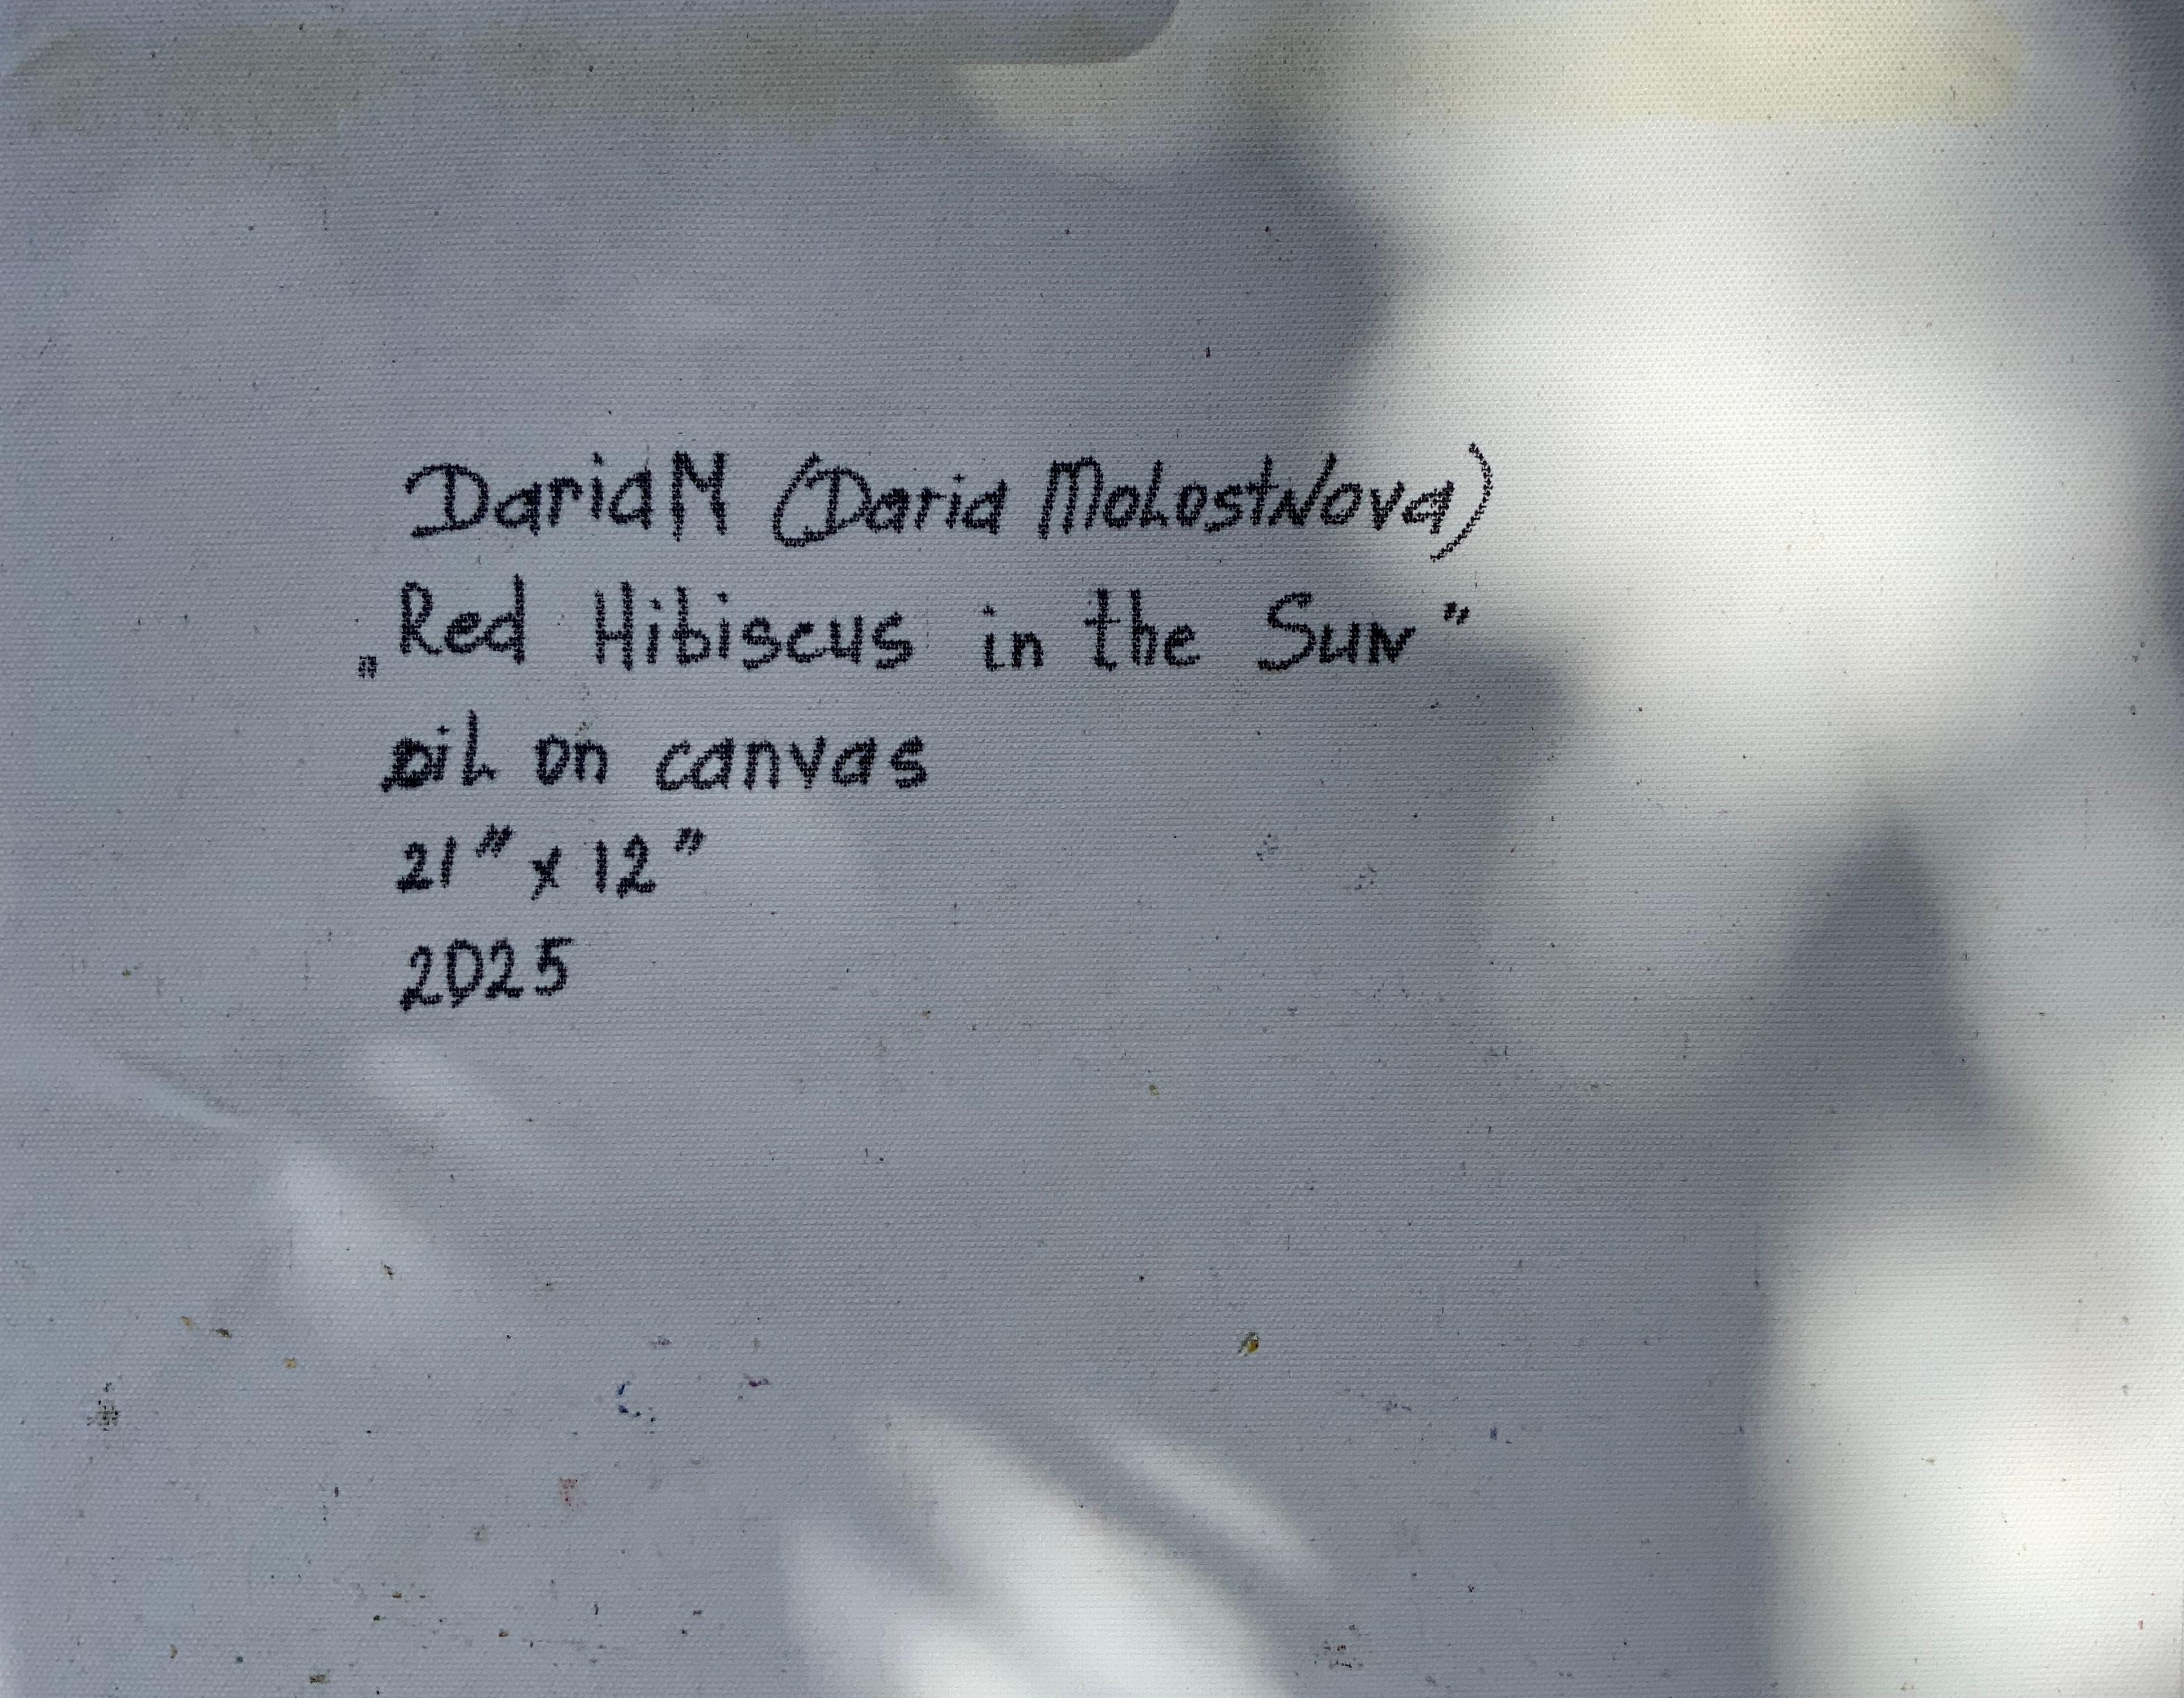 DariaM (Daria MoLostNova)
„Red Hibiscus in the Sun”
oiL on canvas
21” x 12”
2025